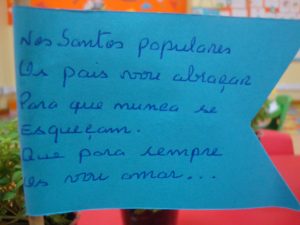 Nos Santos populares
Os pais vou abraçar
Para que nunca se
Esqueçam.
Que para sempre
os vou amar...